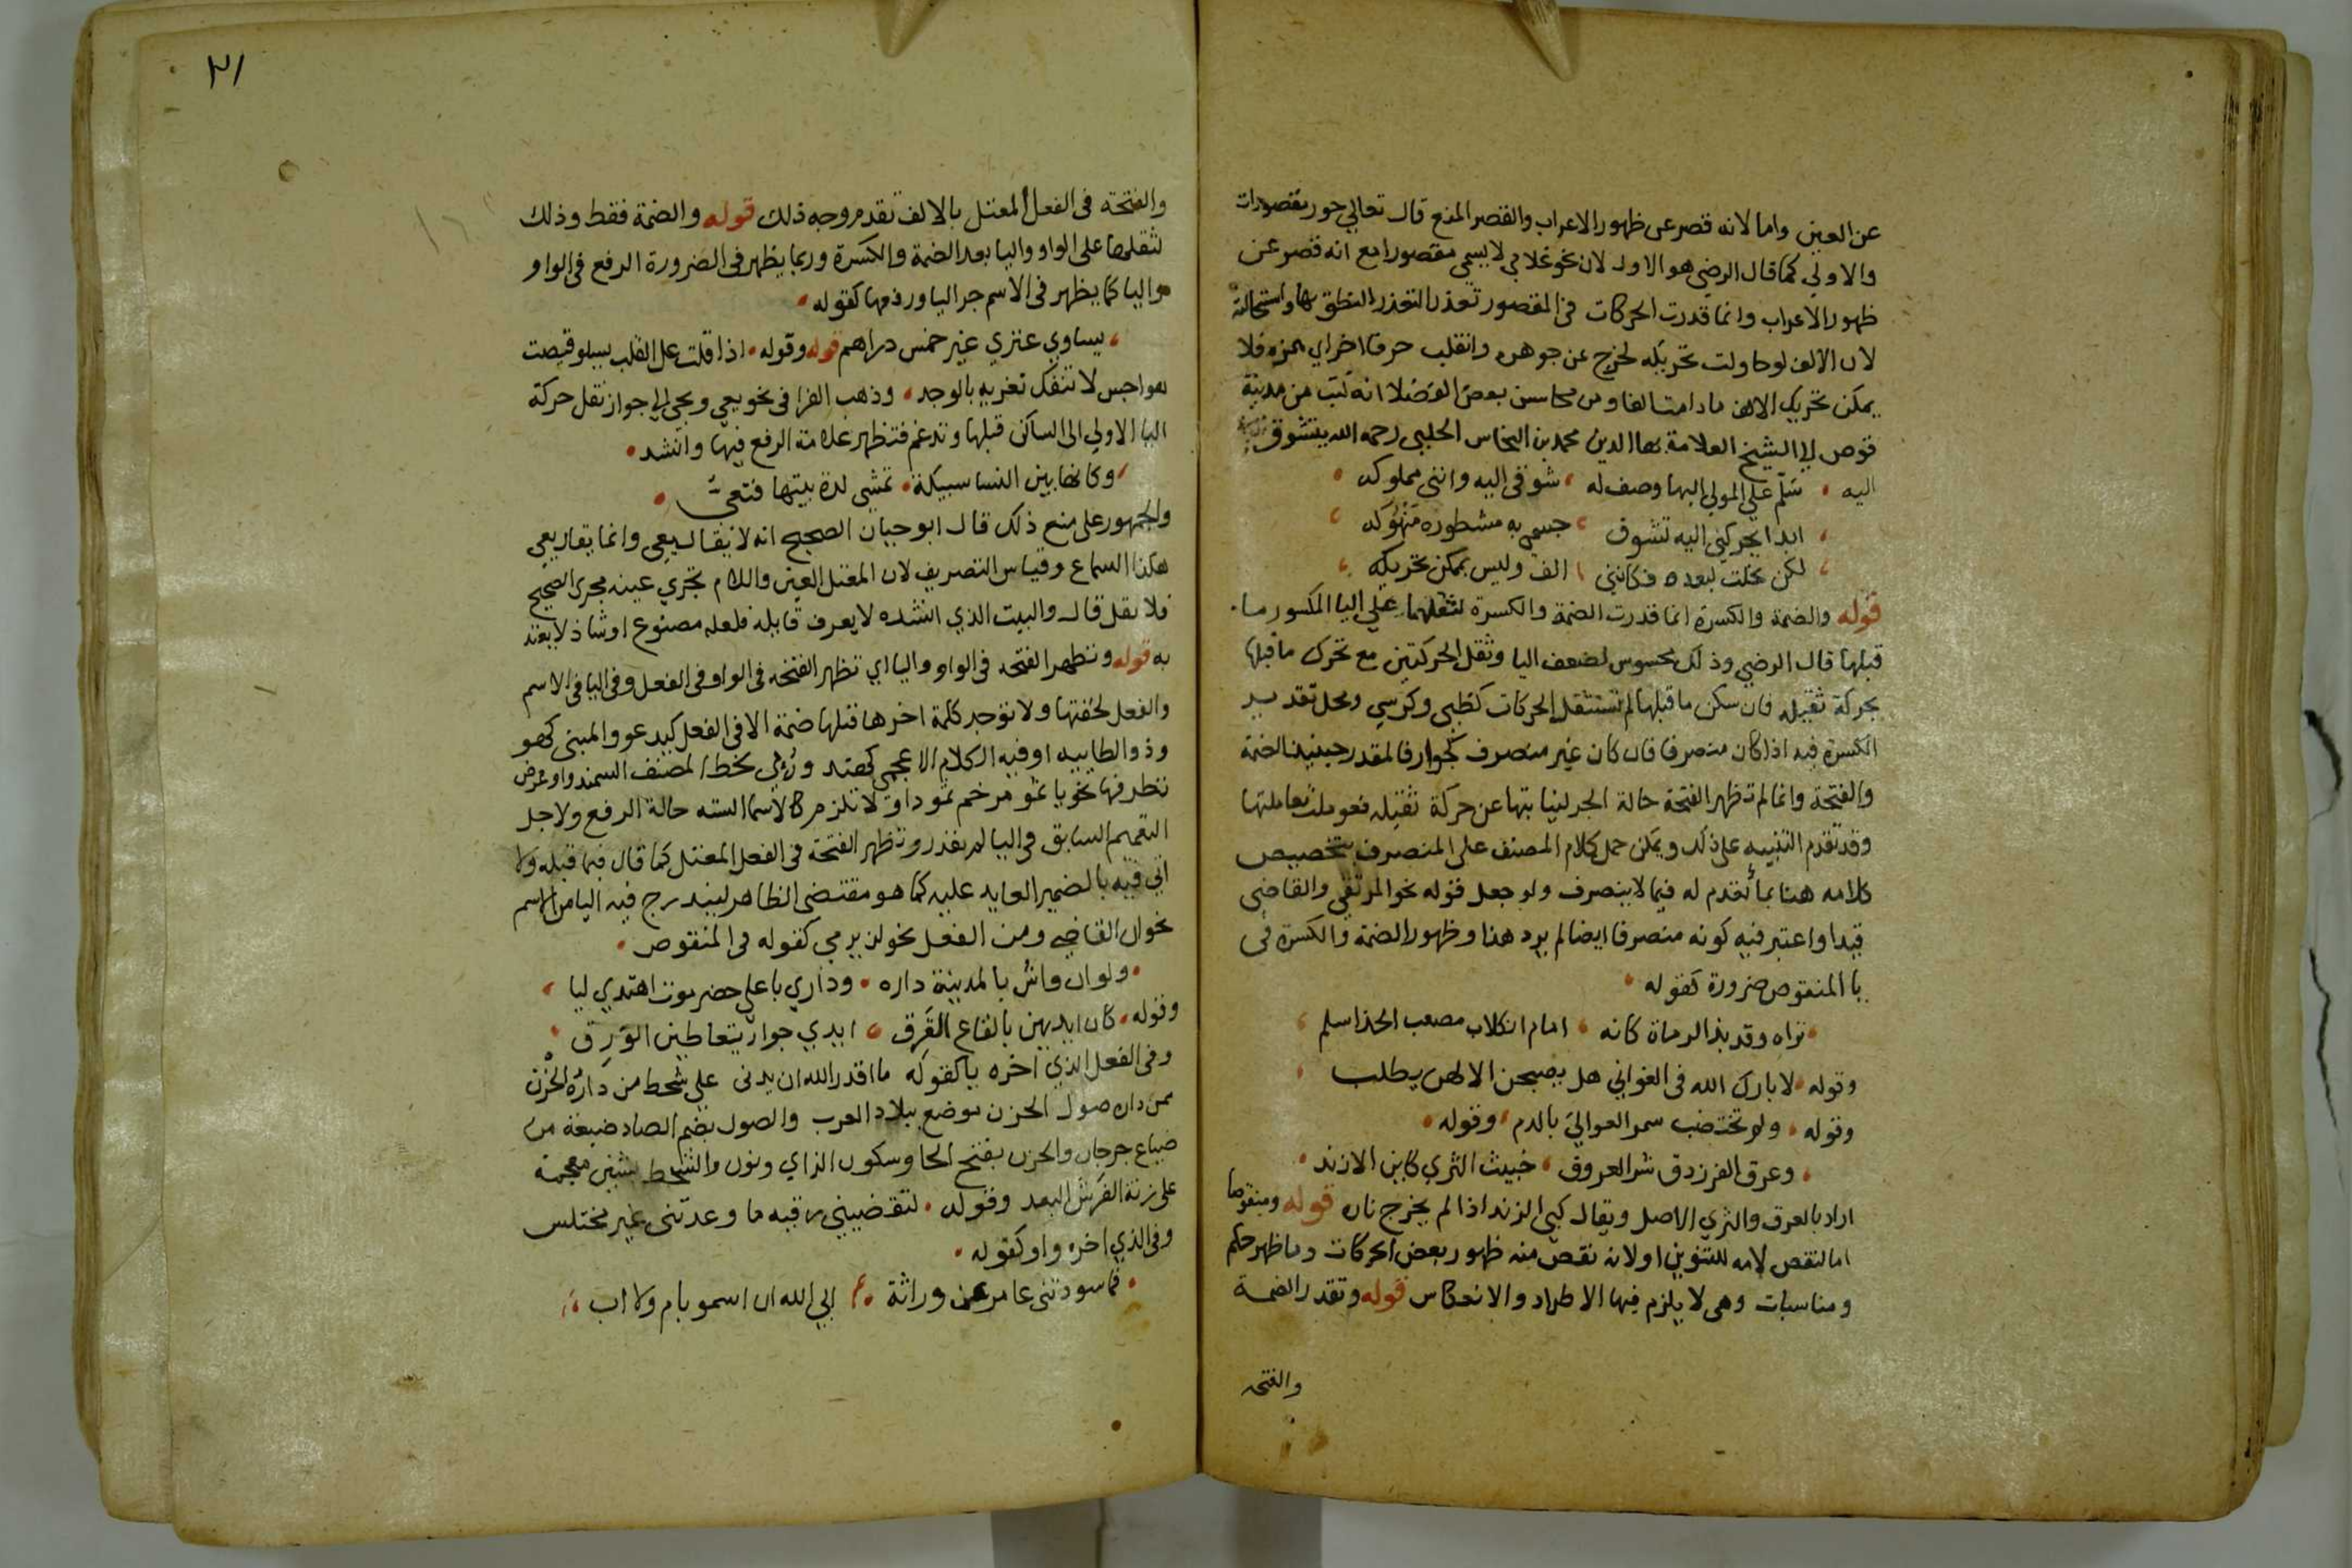 عن العين واما لانه قصر عن ظهور الاعراب والقصر المنع قال تعالي حور مقصورات
والاولي كما قال الرضي هو الاول لان نحو غلامي لا يسمي مقصورا مع انه قصر عن
ظهور الاعراب وانما قدرت الحركات في المقصور تعذرا لتعذر النطق بها واستحالته
لان الالف لو حاولت تحريكه لخرج عن جوهره وانقلب حرفا اخر اي همزه فلا
يمكن تحريك الالف ما دامت الفا ومن محاسن بعض الفضلا انه كتب من مدينة
قوص الي الشيخ العلامة بها الدين محمد بن النحاس الحلبي رحمه الله يتشوق
اليه سلم علي المولي البها وصف له شوقي اليه وانني مملوكه
ابدا يحركني اليه تشوق جسمي به مشطوره منهوكه
لكن نحلت لبعده فكانني الف وليس بممكن تحريكه
قوله والضمة والكسرة انما قدرت الضمة والكسرة لثقلهما علي اليا المكسور ما
قبلها قال الرضي وذلك محسوس لضعف اليا وثقل الحركتين مع تحرك ما قبلها
بحركة ثقيله فان سكن ما قبلها لم تستثقل الحركات كظبي وكرسي ومحل تقدير
الكسرة فيه اذا كان منصرفا فان كان غير منصرف كجوار فالمقدر حينيذ الضمة
والفتحة وانما لم تظهر الفتحة حالة الجر لنيابتها عن حركة ثقيله فعوملت معاملتها
وقد تقدم التنبيه علي ذلك ويمكن حمل كلام المصنف على المنصرف بتخصيص
كلامه هنا بما تقدم له فيما لا ينصرف ولو جعل قوله نحو المرتقي والقاضي
قيدا واعتبر فيه كونه منصرفا ايضا لم يرد هذا وظهور الضمة والكسرة في
يا المنقوص ضرورة كقوله
تراه وقد بذ الرماة كانه امام الكلاب مصعب الخد اسلم
وقوله لا بارك الله في الغواني هل يصبحن الا لهن مطلب
وقوله ولو تختضب سمر العوالي بالدم وقوله
وعرق الفرزدق شر العروق خبيث الثري كابن الازند
اراد بالعرق والثري الاصل ويقال كبي الزند اذا لم يخرج نارا قوله ومنقوصا
اما لنقص لامه للتنوين او لانه نقص منه ظهور بعض الحركات وما ظهر حكم
ومناسبات وهي لا يلزم فيها الاطراد والانعكاس قوله وتقدر الضمة
والفتحه
٣١
والفتحة في الفعل المعتل بالالف تقدم وجه ذلك قوله والضمة فقط وذلك
لثقلها على الواو واليا بعد الضمة والكسرة وربما يظهر في الضرورة الرفع في الواو
واليا كما يظهر في الاسم جر اليا ورفعها كقوله
يساوي عنزي غير خمس دراهم قوله وقوله اذا قلت عل القلب يسلو قيضت
هواجس لا تنفك تغريه بالوجد وذهب الفرا في نحو يعي ويحي الي جواز نقل حركة
اليا الاولي الي الساكن قبلها وتدغم فتظهر علامة الرفع فيها وانشد
وكانها بين النسا سبيكة تمشي لدة بيتها فتعي
والجمهور على منع ذلك قال ابو حيان الصحيح انه لا يقال يعي وانما يقال يعيي
هكذا السماع وقياس التصريف لان المعتل العين واللام تجري عينه مجرى الصحيح
فلا تعل قال والبيت الذي انشده لا يعرف قايله فلعله مصنوع او شاذ لا يعتد
به قوله وتظهر الفتحه في الواو واليا اي تظهر الفتحة في الواو في الفعل وفي اليا في الاسم
والفعل لخفتها ولا توجد كلمة اخرها قبلها ضمة الا في الفعل كيدعو والمبني كهو
وذو الطاييه او فيه الكلام الاعجمي كهند بخط المصنف السمند او عرض
تطرفها نحو يا ثمو مرخم ثمود او لا تلزم كالاسما الستة حالة الرفع ولاجل
التعميم السابق في اليا لم وتظهر الفتحة في الفعل المعتل كما قال فيما قبله ولا
اتي فيه بالضمير العايد عليه كما هو مقتضي الظاهر ليندرج فيه اليا من الاسم
نحو ان القاضي ومن الفعل نحو لن يرمي كقوله في المنقوص
ولو ان واش بالمدينة داره وداري باعلي حضرموت اهتدي ليا
وقوله كان ايديهن بالقاع القرق ايدي جوار يتعاطين الورق
وفي الفعل الذي اخره يا كقوله ما اقدر الله ان يدني علي شحط من داره الحزن
ممن داره صول الحزن موضع ببلاد العرب والصول بضم الصاد ضيعة من
ضياع جرجان والحزن بفتح الحا وسكون الزاي ونون والشحط بشين معجمة
على زنة الفرش البعد وقوله لتقضيني رقيه ما وعدتني غير مختلس
وفي الذي اخره واو كقوله
فما سودتني عامر عن وراثة ابي الله ان اسمو بام ولا اب